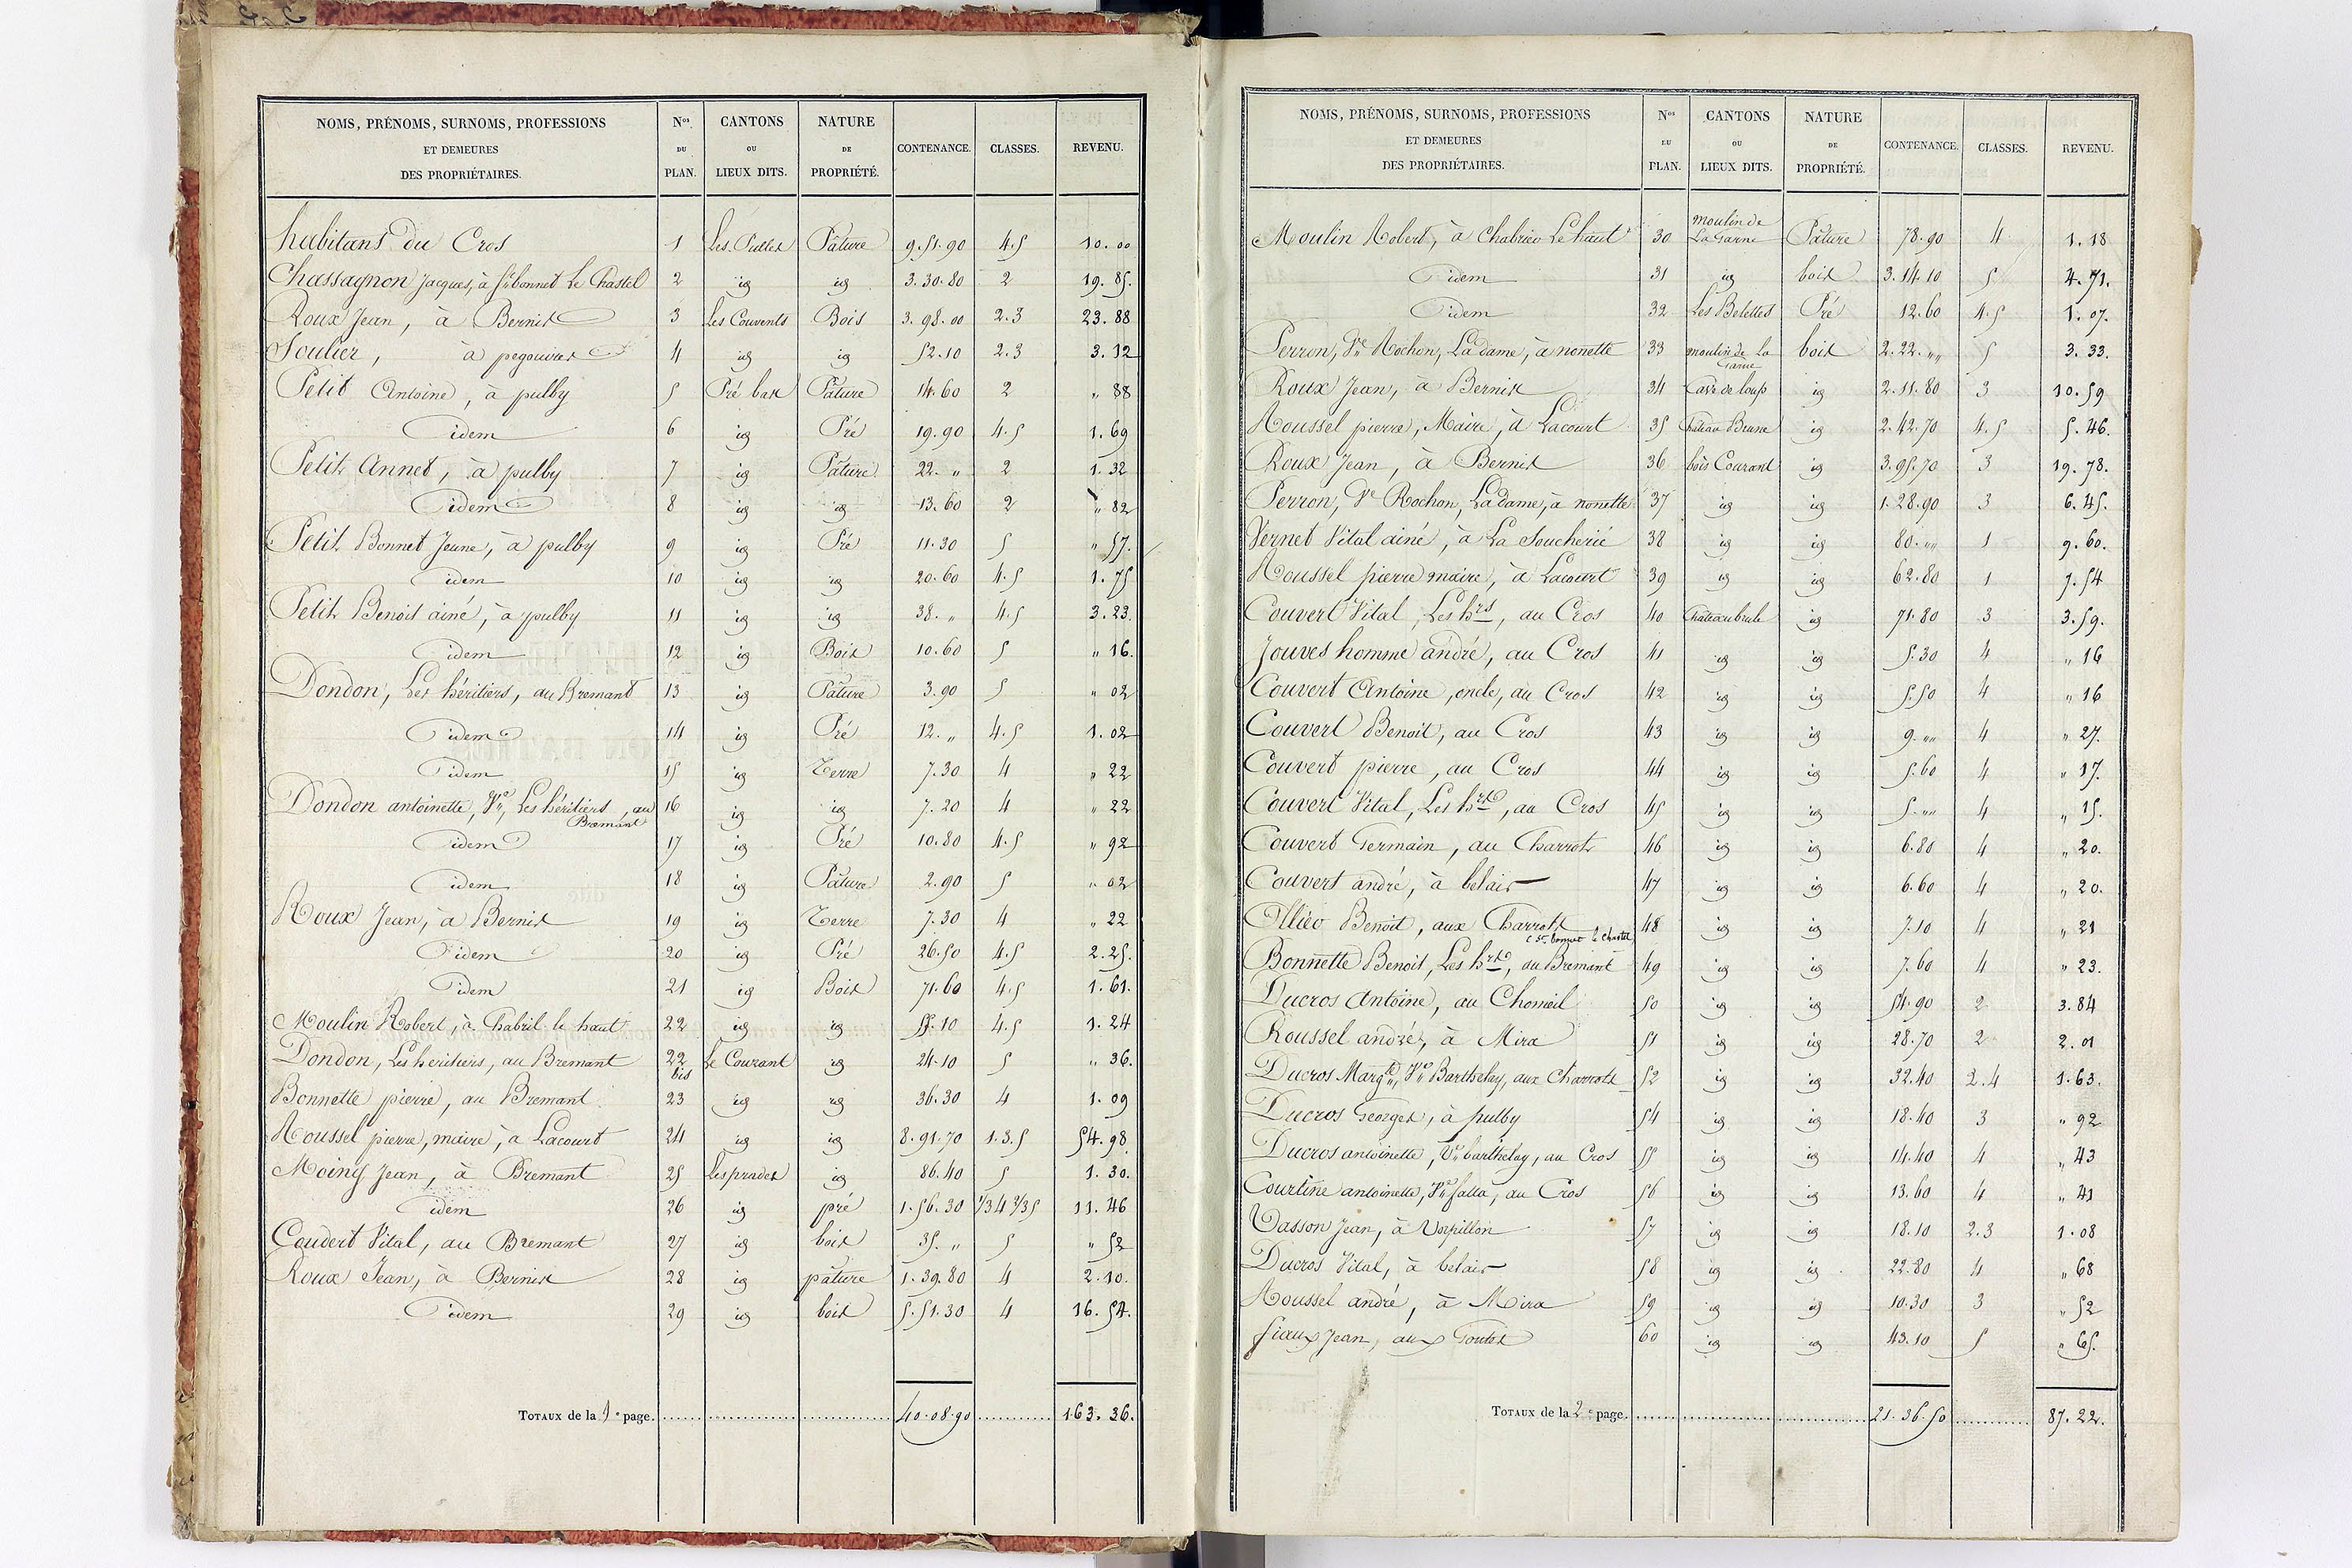 NOMS, PRÉNOMS, SURNOMS, PROFESSIONS ET DEMEURES DES PROPRIÉTAIRES. Nos DU PLAN. CANTONS OU LIEUX DITS. NATURE DE PROPRIÉTÉ. CONTENANCE. CLASSES. REVENU.
habitans du Cros 1 Pâture 9.51.90 4.5 10.00
Chassagnon Jacques, à St bonnet Le Chastel 2 id id 3.30.80 2 19.85.
Roux Jean, à Bernix 3 Les Couvents Bois 3.98.00 2.3 23.88
Soulier, à pegouires 4 id id 52.10 2.3 3.12
Petit Antoine, à pulby 5 Pré bas Pâture 14.60 2 " 88
idem 6 id Pré 19.90 4.5 1.69
Petit Annet, à pulby 7 id Pâture 22. " 2 1.32
idem 8 id id 13.60 2 " 82
Petit Bonnet Jeune, à pulby 9 id Pré 11.30 5 " 57.
idem 10 id id 20.60 4.5 1.75
Petit Benoit ainé, à pulby 11 id id 38. " 4.5 3.23.
idem 12 id Bois 10.60 5 " 16.
Dondon, Les héritiers, au Bremant 13 id Pâture 3.90 5 " 02
idem 14 id Pré 12. " 4.5 1.02
idem 15 id Terre 7.30 4 " 22
Dondon antoinette, Ve, Les héritiers, au Bremant 16 id id 7.20 4 " 22
idem 17 id Pré 10.80 4.5 " 92
idem 18 id Pâture 2.90 5 " 02
Roux Jean, à Bernix 19 id Terre 7.30 4 " 22
idem 20 id Pré 26.50 4.5 2.25.
idem 21 id Bois 71.60 4.5 1.61.
Moulin Robert, à Chabril le haut 22 id id 55.10 4.5 1.24
Dondon, Les heritiers, au Bremant 22 bis Le Courant id 24.10 5 " 36.
Bonnette pierre, au Bremant 23 id id 36.30 4 1.09
Roussel pierre, maire, à Lacourt 24 id id 8.91.70 1.3.5 54.98
Moing Jean, à Bremant 25 Les prades id 86.40 5 1.30.
idem 26 id pré 1.56.30 1/3 4 2/3 5 11.46
Coudert Vital, au Bremant 27 id bois 35. " 5 " 52
Roux Jean, à Bernix 28 id pâture 1.39.80 4 2.10.
idem 29 id bois 5.51.30 4 16.54.
TOTAUX de la 1e page. 40.08.90 163.36.
NOMS, PRÉNOMS, SURNOMS, PROFESSIONS ET DEMEURES DES PROPRIÉTAIRES. Nos DU PLAN. CANTONS OU LIEUX DITS. NATURE DE PROPRIÉTÉ. CONTENANCE. CLASSES. REVENU.
Moulin Robert, à Chabrier Le haut 30 moulin de La Garne Pâture 78.90 4 1.18
idem 31 id bois 3.14.10 5 4.71.
idem 32 Les Belettes Pré 12.60 4.5 1.07.
Perron, Ve Rochon, La dame, à nonette 33 moulin de La Garne bois 2.22. "" 5 3.33.
Roux Jean, à Bernix 34 Cave de loup id 2.11.80 3 10.59
Roussel pierre, Maire, à Lacourt 35 id 2.42.70 4.5 5.46.
Roux Jean, à Bernix 36 bois Courant id 3.95.70 3 19.78.
Perron, Ve Rochon, La dame, à nonette 37 id id 1.28.90 3 6.45.
Vernet Vital ainé, à La Soucherie 38 id id 80. "" 1 9.60.
Roussel pierre maire, à Lacourt 39 id id 62.80 1 7.54
Couvert Vital, Les hrs, au Cros 40 Chateau brule id 71.80 3 3.59.
Jouveshomme andré, au Cros 41 id id 5.30 4 " 16
Couvert Antoine, oncle, au Cros 42 id id 5.50 4 " 16
Couvert Benoit, au Cros 43 id id 9. "" 4 " 27.
Couvert pierre, au Cros 44 id id 5.60 4 " 17.
Couvert Vital, Les hrs, au Cros 45 id id 5. "" 4 " 15.
Couvert Germain, au Charrots 46 id id 6.80 4 " 20.
Couvert andré, à belair 47 id id 6.60 4 " 20.
Benoit, aux Charrots c. St. bonnet le Chastel 48 id id 7.10 4 " 21
Bonnette Benoit, Les hrs, au Bremant 49 id id 7.60 4 " 23.
Ducros Antoine, au Chomeil 50 id id 54.90 2 3.84
Roussel andré, à Mira 51 id id 28.70 2 2.01
Ducros Margte, Ve Barthelay, aux Charrots 52 id id 32.40 2.4 1.63.
Ducros Georges, à pulby 54 id id 18.40 3 " 92
Ducros antoinette, Ve barthelay, au Cros 55 id id 14.40 4 " 43
Courtine antoinette, Ve falla, au Cros 56 id id 13.60 4 " 41
Vasson Jean, à 57 id id 18.10 2.3 1.08
Ducros Vital, à belair 58 id id 22.80 4 " 68
Roussel andré, à Mira 59 id id 10.30 3 " 52
fiaux Jean, aux Goutes 60 id id 43.10 5 " 65.
TOTAUX de la 2e page. 21.36.50 87.22.